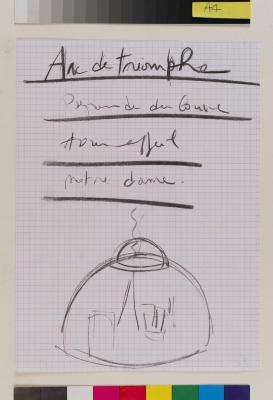 A4
Arc de triomphe
Pyramide du Louvre
tour eiffel
notre dame.